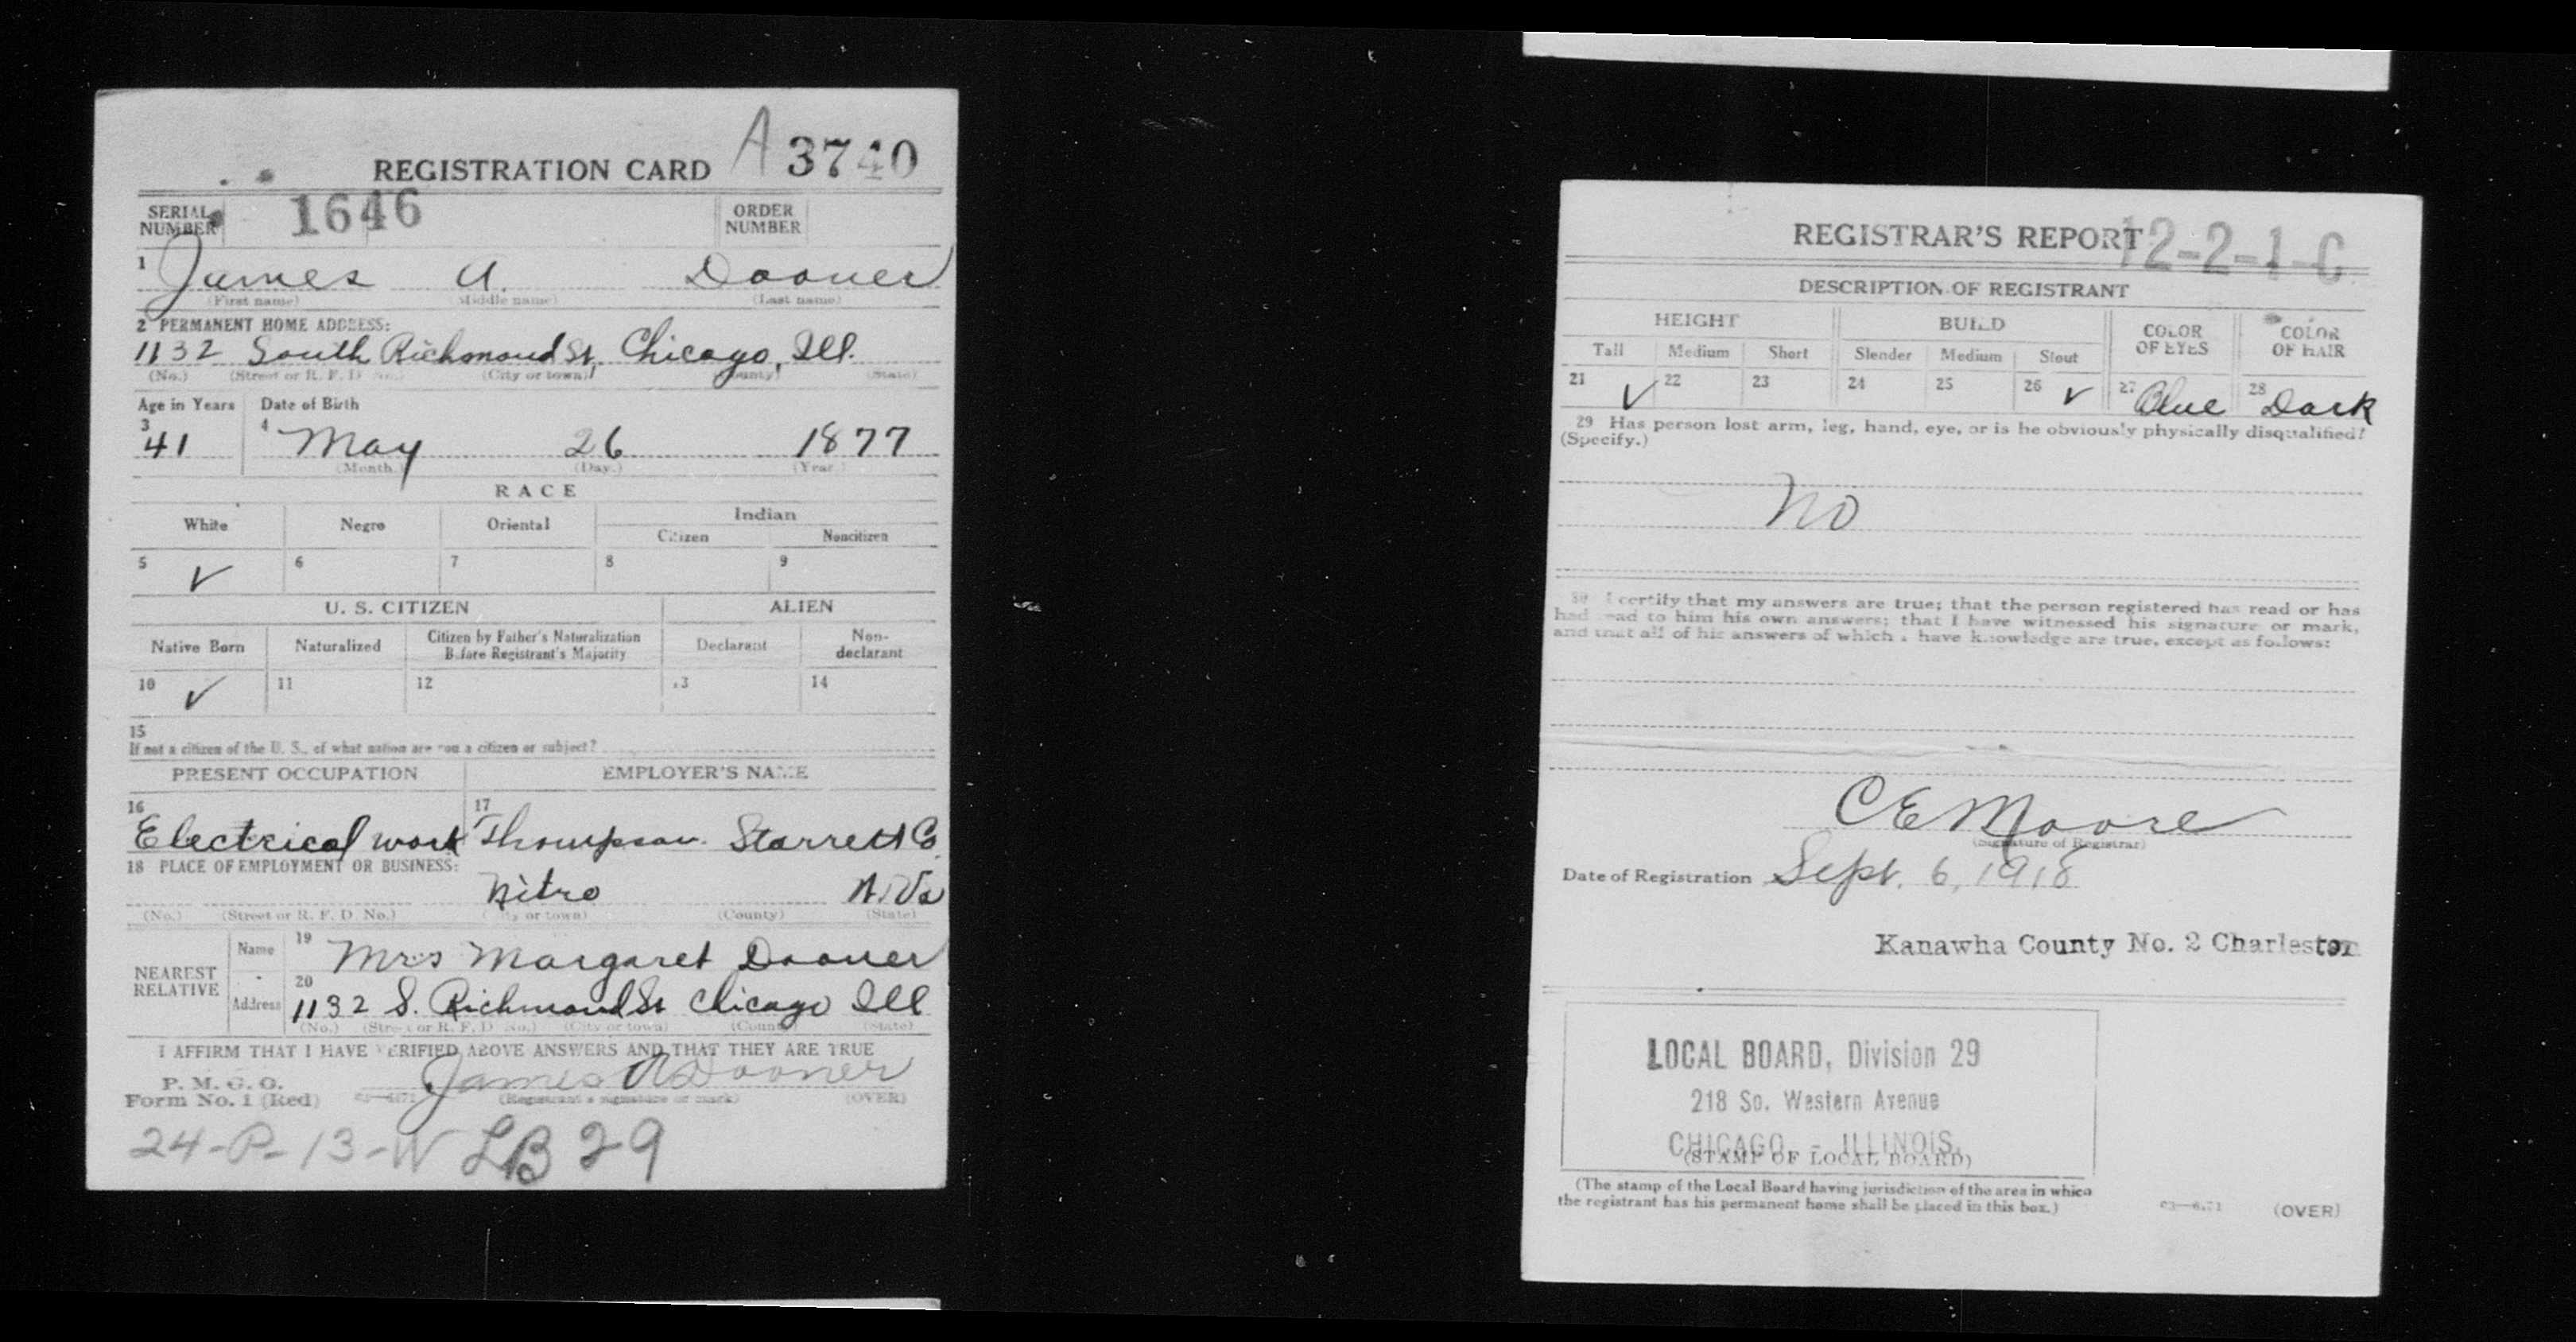 REGISTRATION CARD A 3740
SERIAL NUMBER 1646 ORDER NUMBER
1 James A. Dooner
(First name) (Middle name) (Last name)
2 PERMANENT HOME ADDRESS:
1132 South Richmond St. Chicago, Ill.
(No.) (Street or R. F. D No.) (City or town) (County) (State)
Age in Years Date of Birth
3 41 4 May 26 1877
(Month.) (Day.) (Year.)
RACE
White Negro Oriental Indian
Citizen Noncitizen
5 ✓ 6 7 8 9
U. S. CITIZEN ALIEN
Native Born Naturalized Citizen by Father's Naturalization Before Registrant's Majority Declarant Non-declarant
10 ✓ 11 12 13 14
15
If not a citizen of the U. S., of what nation are you a citizen or subject?
PRESENT OCCUPATION EMPLOYER'S NAME
16 Electrical work 17 Thompson. Starrett Co.
18 PLACE OF EMPLOYMENT OR BUSINESS:
Nitro W.Va
(No.) (Street or R. F. D No.) (City or town) (County) (State)
NEAREST RELATIVE
Name 19 Mrs Margaret Dooner
Address 20 1132 S. Richmond St Chicago Ill
(No.) (Street or R. F. D No.) (City or town) (County) (State)
I AFFIRM THAT I HAVE VERIFIED ABOVE ANSWERS AND THAT THEY ARE TRUE
P. M. G. O.
Form No. 1 (Red) James A Dooner
(Registrant's signature or mark) (OVER)
24-P-13-W LB 29
REGISTRAR'S REPORT 12-2-1-C
DESCRIPTION OF REGISTRANT
HEIGHT BUILD COLOR OF EYES COLOR OF HAIR
Tall Medium Short Slender Medium Stout
21 ✓ 22 23 24 25 26 ✓ 27 Blue 28 Dark
29 Has person lost arm, leg, hand, eye, or is he obviously physically disqualified?
(Specify.)
No
30 I certify that my answers are true; that the person registered has read or has
had read to him his own answers; that I have witnessed his signature or mark,
and that all of his answers of which I have knowledge are true, except as follows:
C E Moore
(Signature of Registrar)
Date of Registration Sept. 6, 1918
Kanawha County No. 2 Charleston
LOCAL BOARD, Division 29
218 So. Western Avenue
CHICAGO, - ILLINOIS.
(STAMP OF LOCAL BOARD)
(The stamp of the Local Board having jurisdiction of the area in which
the registrant has his permanent home shall be placed in this box.)
(OVER)